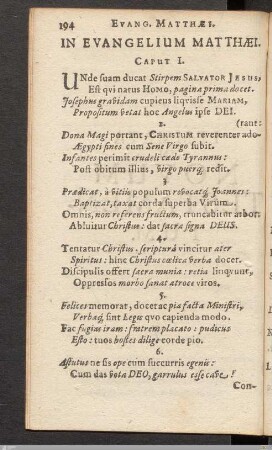 194 EVANG. MATTHÆI.
IN EVANGELIUM MATTHÆI.
CAPUT I.
UNde suam ducat Stirpem SALVATOR JESUS,
Est qvi natus HOMO, pagina prima docet.
Josephus gravidam cupiens liqvisse MARIAM,
Propositum vetat hoc Angelus ipse DEI.
2. (rant:
Dona Magi portant, CHRISTUM reverenter ado-
Ægypti fines cum Sene Virgo subit.
Infantes perimit crudeli cæde Tyrannus:
Post obitum illius, virgo puerq; redit.
3
Prædicat, à vitiis populum revocatq; Joannes:
Baptizat, taxat corda superba Virûm.
Omnis, non referens fructum, truncabitur arbor:
Abluitur Christus: dat sacra signa DEUS.
4.
Tentatur Christus, scripturâ vincitur ater
Spiritus: hinc Christus cœlica verba docet.
Discipulis offert sacra munia: retia linqvunt,
Oppressos morbo sanat atroce viros.
5.
Felices memorat, docet ac pia facta Ministri,
Verbaq; sint Legis qvo capienda modo.
Fac fugias iram: fratrem placato: pudicus
Esto: tuos hostes dilige corde pio.
6.
Astutus ne sis ope cum succurris egenis:
Cum das vota DEO, garrulus esse cave!
Con-